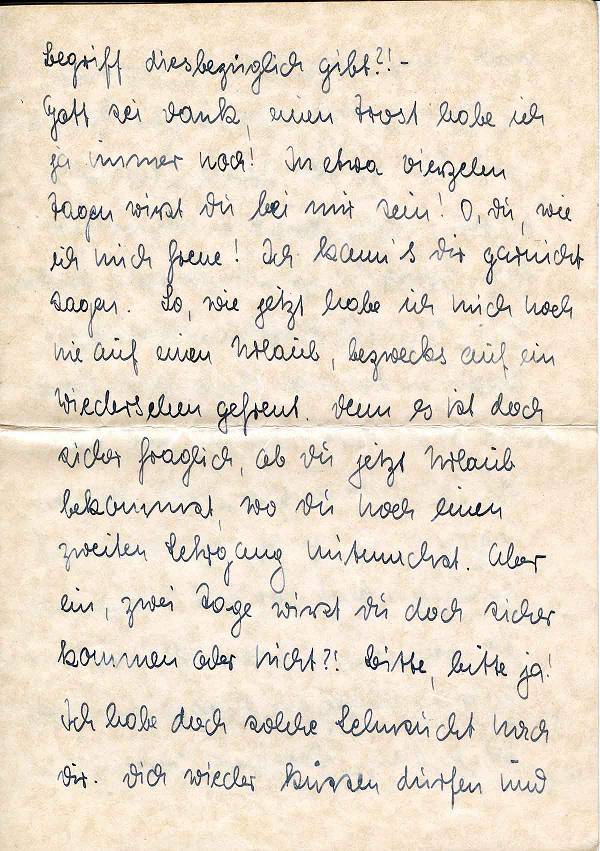 Begriff diesbezüglich gibt?! -
Gott sei Dank, einen Trost habe ich
ja immer noch! In etwa vierzehn
Tagen wirst du bei mir sein! O, du, wie
ich mich freue! Ich kann's dir garnicht
sagen. So, wie jetzt habe ich mich noch
nie auf einen Urlaub, bezwecks auf ein
Wiedersehen gefreut. Denn es ist doch
sicher fraglich, ob du jetzt Urlaub
bekommst, wo du noch einen
zweiten Lehrgang mitmachst. Aber
ein, zwei Tage wirst du doch sicher
kommen oder nicht?! Bitte, bitte ja!
Ich habe doch solche Sehnsucht nach
dir. Dich wieder küssen dürfen und